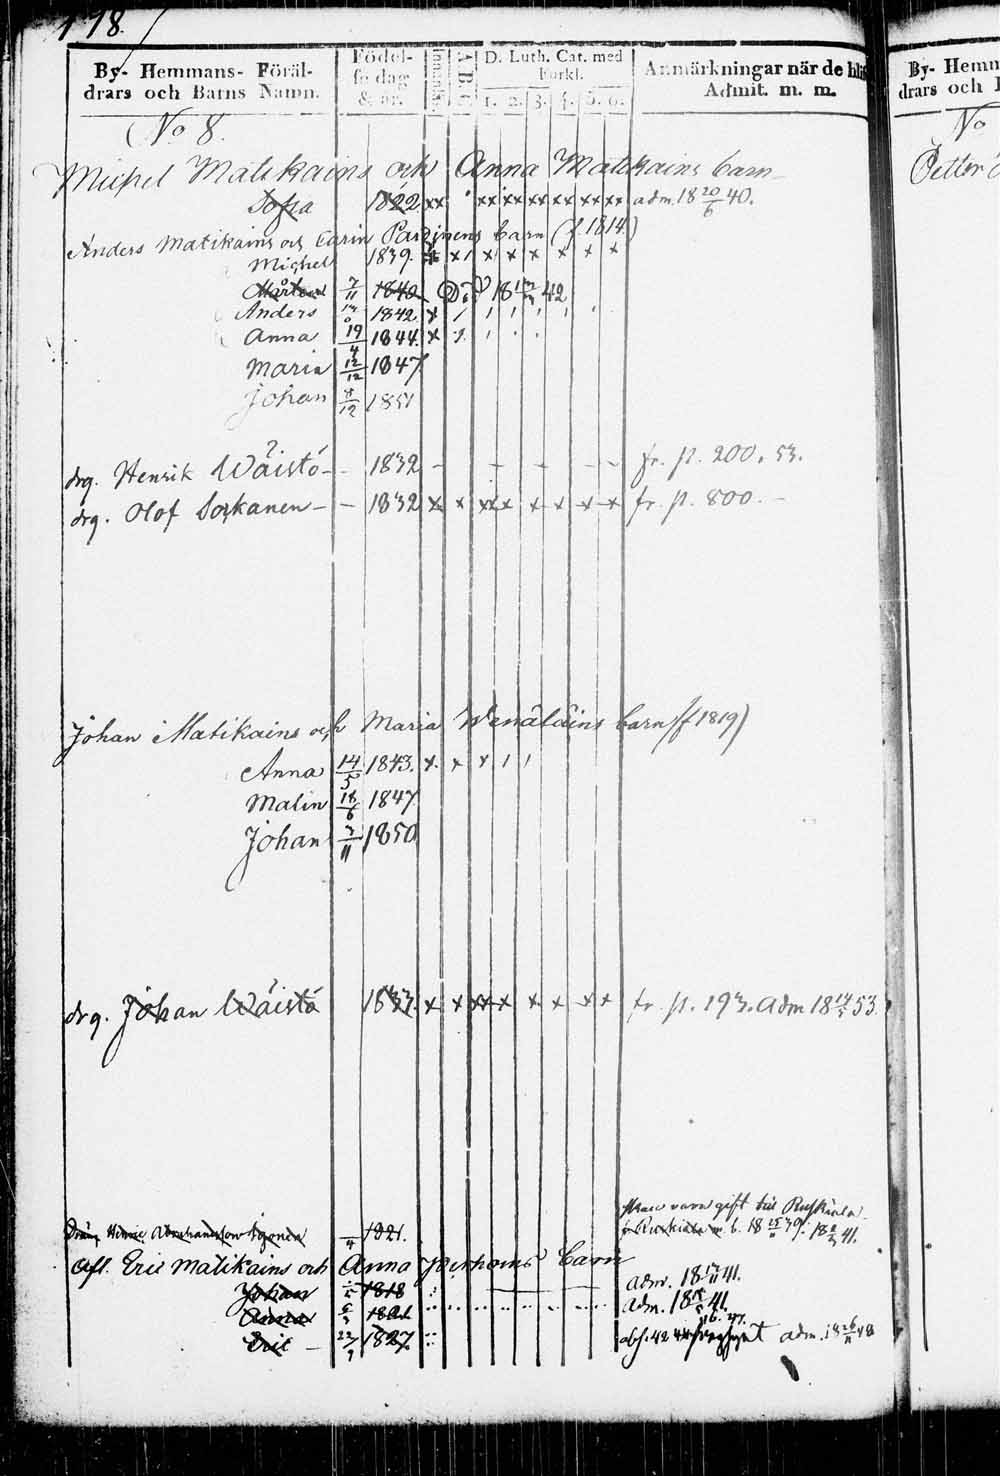 118.
By- Hemmans- Föräl-
drars och Barns Namn.
Födel-
se dag
& år.
Innanläs.
A B C
D. Luth. Cat. med
Förkl.
1. 2. 3. 4. 5. 6.
Anmärkningar när de bli
Admit. m. m.
No 8.
Michel Matikains och Anna Matikains barn
Sofia 1822 xx xx xx xx xx xx xx adm. 18 20/6 40.
Anders Matikains och Carin Parjinens barn (f 1814.)
Michel 1839. x x x x x x x x
Mårten 7/11 1840 Död 18 42
Anders 1842. x
Anna 19/4 1844. x
Maria 12/12 1847
Johan 8/12 1851
drg. Henrik Wäistö - - 1832 - - - - - fr. p. 200. 53.
drg. Olof Sorkanen - - 1832 x x xx x x x x x fr. p. 800. -
Johan Matikains och Maria Wenäläins barn (f 1819)
Anna 14/5 1843. x. x x
Malin 18/6 1847
Johan 7/11 1850
drg. Johan Wäistö 1833. x x xx x x x x x fr. p. 193. Adm 18 53.
varn gift till Ruskiala
Dräng Abrahamsson 1821. fr Ruskiala 18 39. 18 41.
Afl. Eric Matikains och Anna Barn
Johan 1818 adm. 18 41.
Anna 1821 Adm. 18 41.
16. 47.
Eric - 22/9 1827. abs. 42 44 adm. 18 26/11 48
By- Hemm
drars och
No
Petter